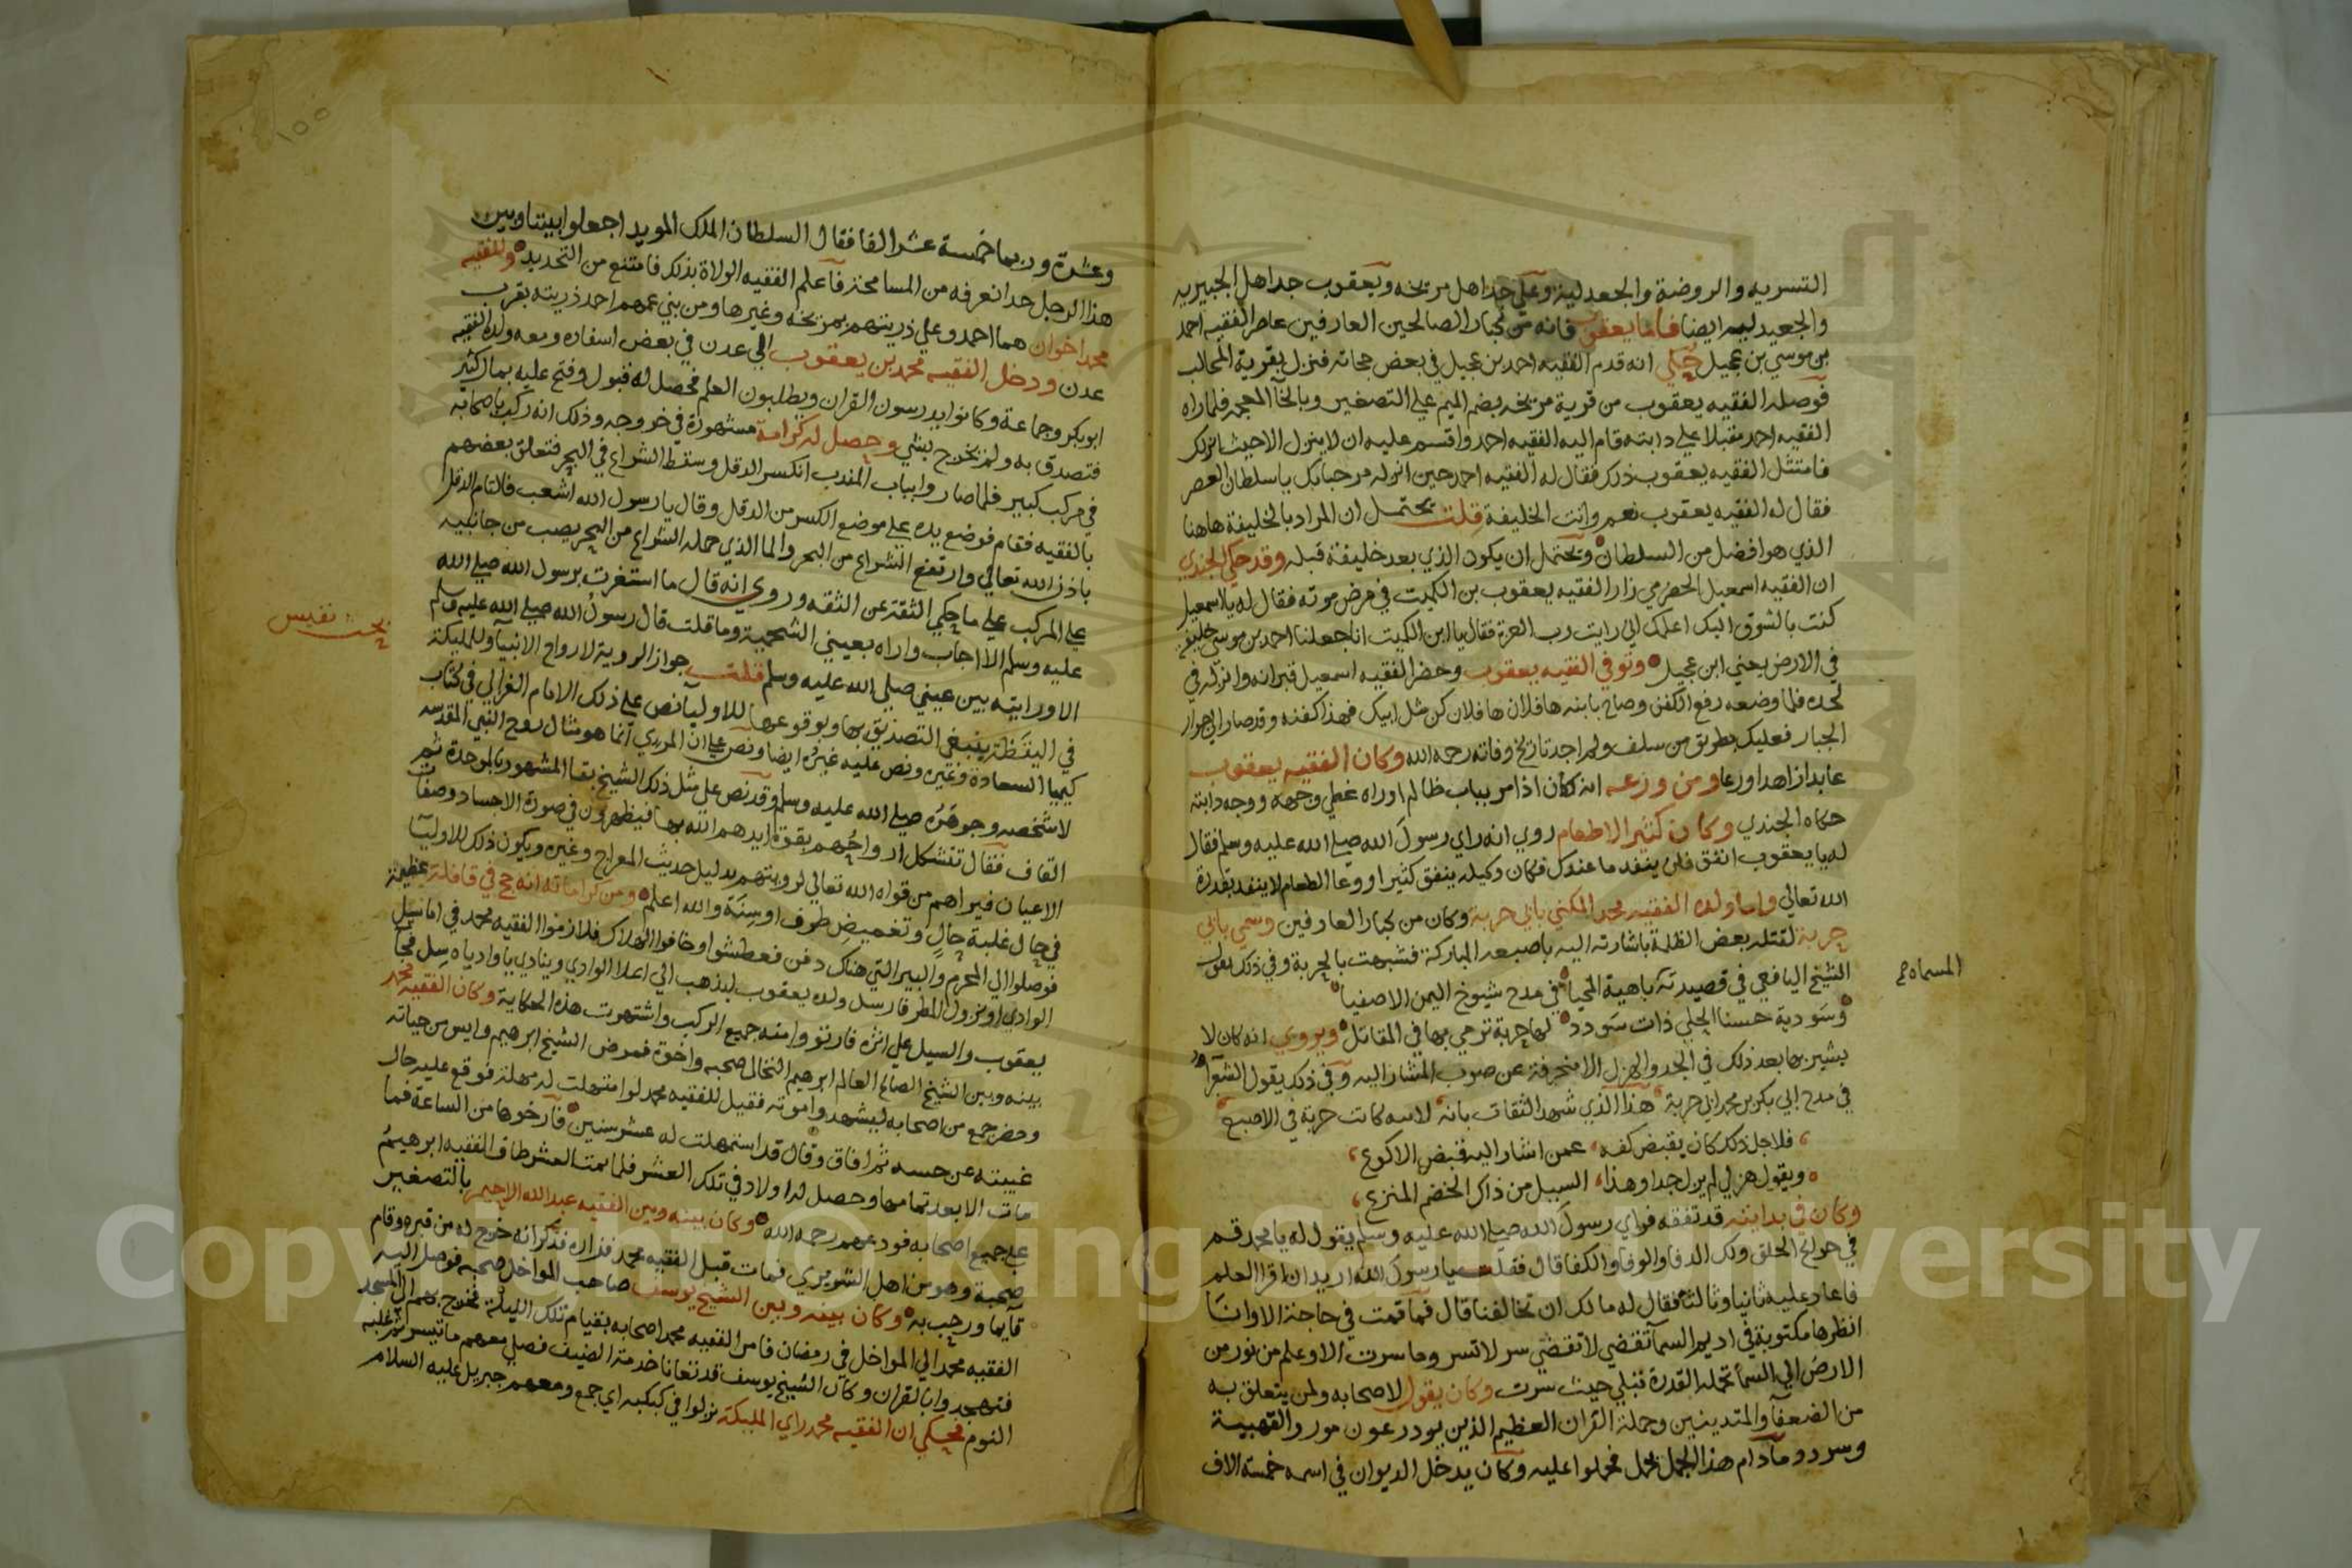 التسريه والروضة والجعدلية وعلي جد اهل مريخه ويعقوب جد اهل الجبيريه
والجعيدليه ايضا فاما يعقوب فانه من كبار الصالحين العارفين عاصر الفقيه احمد
بن موسي بن عجيل حكي انه قدم الفقيه احمد بن عجيل في بعض حجاته فنزل بقرية المحالب
فوصله الفقيه يعقوب من قرية مريخه بضم الميم علي التصغير وبالخآ المعجمه فلما راه
الفقيه احمد مقبلا علي دابته قام اليه الفقيه احمد واقسم عليه ان لا ينزل الا حيث انزلك
فامتثل الفقيه يعقوب ذلك فقال له الفقيه احمد حين انزله مرحبا بك يا سلطان العصر
فقال له الفقيه يعقوب نعم وانت الخليفة قلت يحتمل ان المراد بالخليفة هاهنا
الذي هو افضل من السلطان ويحتمل ان يكون الذي بعد خليفة قبله وقد حكي الجندي
ان الفقيه اسمعيل الحضرمي زار الفقيه يعقوب بن الكميت في مرض موته فقال له يا اسمعيل
كنت بالشوق اليك اعلمك اني رايت رب العزة فقال يا ابن الكميت انا جعلنا احمد بن موسي خليفة
في الارض يعني ابن عجيل وتوفي الفقيه يعقوب وحضر الفقيه اسمعيل قبرانه وانزله في
لحده فلما وضعه رفع الكفن وصاح بابنه ها فلان ها فلان كن مثل ابيك فهذا كفنه وقد صار الي جوار
الجبار فعليك بطريق من سلف ولم اجد تاريخ وفاته رحمه الله وكان الفقيه يعقوب
عابدا زاهدا ورعا ومن ورعه انه كان اذا مر بباب ظالم او راه غطي وجهه ووجه دابته
حكاه الجندي وكان كثير الاطعام روي انه راي رسول الله صلي الله عليه وسلم فقال
له يا يعقوب انفق فلن ينفد ما عندك فكان وكيله ينفق كثيرا ووعا الطعام لا ينفد بقدرة
الله تعالي واما ولده الفقيه محمد المكني بابي حربة وكان من كبار العارفين وسمي بابي
حربة لقتله بعض الظلمة باشارته اليه باصبعه المباركة فشبهت بالحربة وفي ذلك يقول
الشيخ اليافعي في قصيدته باهية المحيا في مدح شيوخ اليمن الاصفيا
المسماه
وسودية حسنا الحلي ذات سودد لها حربة ترمي بها في المقاتل ويروي انه كان لا
يشير بها بعد ذلك في الجد والهزل الا منحرفة عن صوب المشار اليه وفي ذلك يقول الشعرآ
في مدح ابي بكر بن محمد ابي حربة هذا الذي شهد الثقات بانه لابيه كانت حربة في الاصبع
فلاجل ذلك كان يقبض كفه عمن اشار اليه قبض الاكوع
ويقول هزلي لم يزل جدا وهذا السبيل من ذاك الخضم المترع
وكان في بدايته قد تفقه فراي رسول الله صلي الله عليه وسلم يقول له يا محمد قم
في حوائج الخلق ولك الدفا والوفا والكفا قال فقلت يا رسول الله اريد ان اقرا العلم
فاعاد عليه ثانيا وثالثا فقال له مالك ان تخالفنا قال فما قمت في حاجة الا وانا
انظرها مكتوبة في اديم السمآ تقضي لا تقضي سر لا تسر وما سرت الا وعلم من نور من
الارض الي السمآ تحمله القدرة قبلي حيث سرت وكان يقول لاصحابه ولمن يتعلق به
من الضعفآ والمتدينين وحملة القران العظيم الذين يودرعون مور والقهبية
وسردد ما دام هذا الجمل يحمل فحملوا عليه وكان يدخل الديوان في اسمه خمسة الاف
١٠٠
وعشرة وربما خمسة عشر الفا فقال السلطان الملك المويد اجعلوا بيننا وبين
هذا الرجل حدا نعرفه من المسامحة فاعلم الفقيه الولاة بذلك فامتنع من التحديد وللفقيه
محمد اخوان هما احمد وعلي ذريتهم بمريخة وغيرها ومن بني عمهم احمد ذريته بقرب
عدن ودخل الفقيه محمد بن يعقوب الي عدن في بعض اسفاره ومعه ولده الفقيه
ابو بكر وجماعة وكانوا يدرسون القران ويطلبون العلم فحصل له قبول وفتح عليه بمال كثير
فتصدق به ولم يخرج بشي وحصل له كرامة مشهورة في خروجه وذلك انه ركب باصحابه
في مركب كبير فلما صاروا بباب المندب انكسر الدقل وسقط الشراع في البحر فتعلق بعضهم
بالفقيه فقام فوضع يده علي موضع الكسر من الدقل وقال يا رسول الله اشعب فالتام الدقل
باذن الله تعالي وارتفع الشراع من البحر والما الذي حمله الشراع من البحر يصب من جانبيه
علي المركب علي ما حكي الثقة عن الثقه وروي انه قال ما استغرت برسول الله صلي الله
عليه وسلم الا اجاب واراه بعيني الشحمية وما قلت قال رسول الله صلي الله عليه وسلم
الا ورايته بين عيني صلي الله عليه وسلم قلت جواز الروية لارواح الانبيآ والمليكة
بحث نفيس
في اليقظة ينبغي التصديق بها وبوقوعها للاوليآ نص علي ذلك الامام الغزالي في كتاب
كيميا السعادة وغيره ونص عليه غيره ايضا ونص علي ان المريي انما هو مثال روح النبي المقدسه
لا شخصه وجوهره صلي الله عليه وسلم وقد نص علي مثل ذلك الشيخ بقا المشهور بالوحدة ثم
القاف فقال تتشكل ارواحهم بقوة ايدهم الله بها فيظهرون في صورة الاجساد وصفات
الاعيان فيراهم من قواه الله تعالي لرويتهم بدليل حديث المعراج وغيره ويكون ذلك للاوليآ
في حال غلبة حال وتغميض طرف او سنة والله اعلم ومن كراماته انه حج في قافلة عظيمة
فوصلوا الي المحرم والبير التي هناك دفن فعطشوا وخافوا الهلاك فلازموا الفقيه محمد في اما نسيل
الوادي او نزول المطر فارسل ولده يعقوب ليذهب الي اعلا الوادي وينادي يا وادياه سل فجآ
يعقوب والسيل علي اثره فارتووا منه جميع الركب واشتهرت هذه الحكاية وكان الفقيه محمد
بينه وبين الشيخ الصالح العالم ابرهيم النخالي صحبه واخوة فمرض الشيخ ابرهيم وايس من حياته
وحضر جمع من اصحابه ليشهدوا موته فقيل للفقيه محمد لو استمهلت له مهلة فوقع عليه حال
غيبته عن حسه ثم افاق وقال قد استمهلت له عشر سنين فارخوها من الساعة فما
مات الا بعد تمامها وحصل له اولاد في تلك العشر فلما تمت العشر طاف الفقيه ابرهيم
علي جميع اصحابه فودعهم رحمه الله وكان بينه وبين الفقيه عبد الله الاحيمر بالتصغير
صحبة وهو من اهل الشويري فمات قبل الفقيه محمد فزاره فذكر انه خرج له من قبره وقام
قايما ورحب به وكان بينه وبين الشيخ يوسف صاحب المواخل صحبه فوصل اليه
الفقيه محمد الي المواخل في رمضان فامر الفقيه محمد اصحابه بقيام تلك الليلة فخرج بهم الي المسجد
فتهجدوا بالقران وكان الشيخ يوسف قد تعانا خدمة الضيف فصلي معهم ما تيسر ثم غلبه
النوم فحكي ان الفقيه محمد راي المليكة نزلوا في كبكبه اي جمع ومعهم جبريل عليه السلام
Copyright © King Saud University